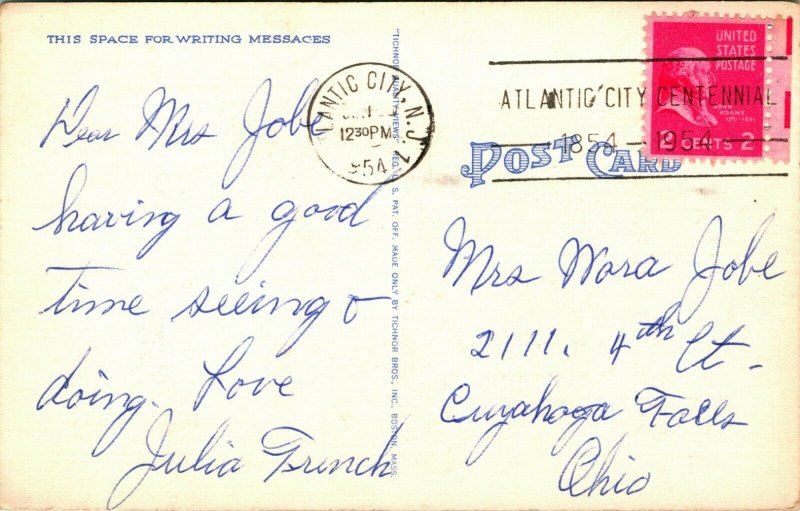 THIS SPACE FOR WRITING MESSAGES
Dear Mrs Jobe
having a good
time seeing &
doing. Love
Julia French
"TICHNOR QUALITY VIEWS," REG. U. S. PAT. OFF. MADE ONLY BY TICHNOR BROS., INC., BOSTON, MASS.
ATLANTIC CITY, N.J.
1230PM
1954
ATLANTIC CITY CENTENNIAL
1854-1954
UNITED
STATES
POSTAGE
JOHN
ADAMS
2 CENTS 2
POST CARD
Mrs Nora Jobe
2111. 4th Ct.
Cuyahoga Falls
Ohio